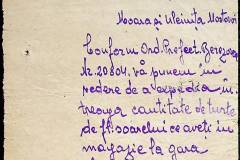 Moara și Uleinița Mostovoi
Conform Ord. Prefect. Berezovca
Nr. 20804, vă punem în
vedere de a expedia în-
treaga cantitate de turte
de fl. soarelui ce aveți în
magazie la gara